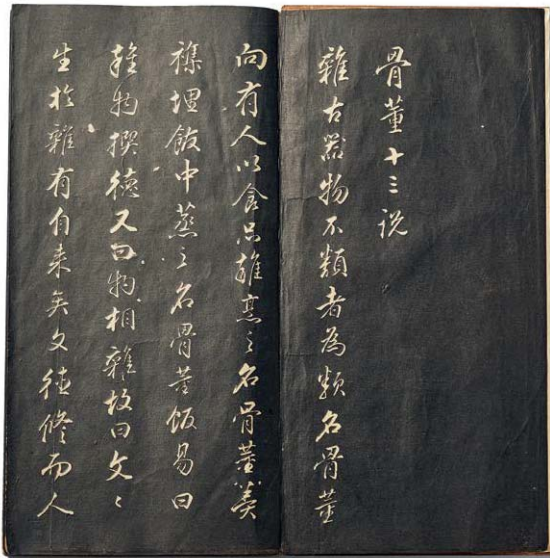 骨董十三说
雜古器物不類者為類名骨董
向有人以食品雜烹之名骨董羹
襍埋飯中蒸之名骨董飯易曰
雜物撰德又曰物相雜故曰文〻
生於雜有自来矣文德修而人